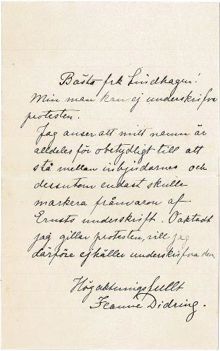 Bästa frk Lindhagen!
Min man kan ej underskrifva
protesten.
Jag anser att mitt namn är
alldeles för obetydligt till att
stå mellan inbjudarnes och
dessutom endast skulle
markera frånvaron af
Ernsts underskrift. Oaktadt
jag gillar protesten, vill jag
därföre ej häller underskrifva den
Högaktningsfullt
Jeanne Didring.